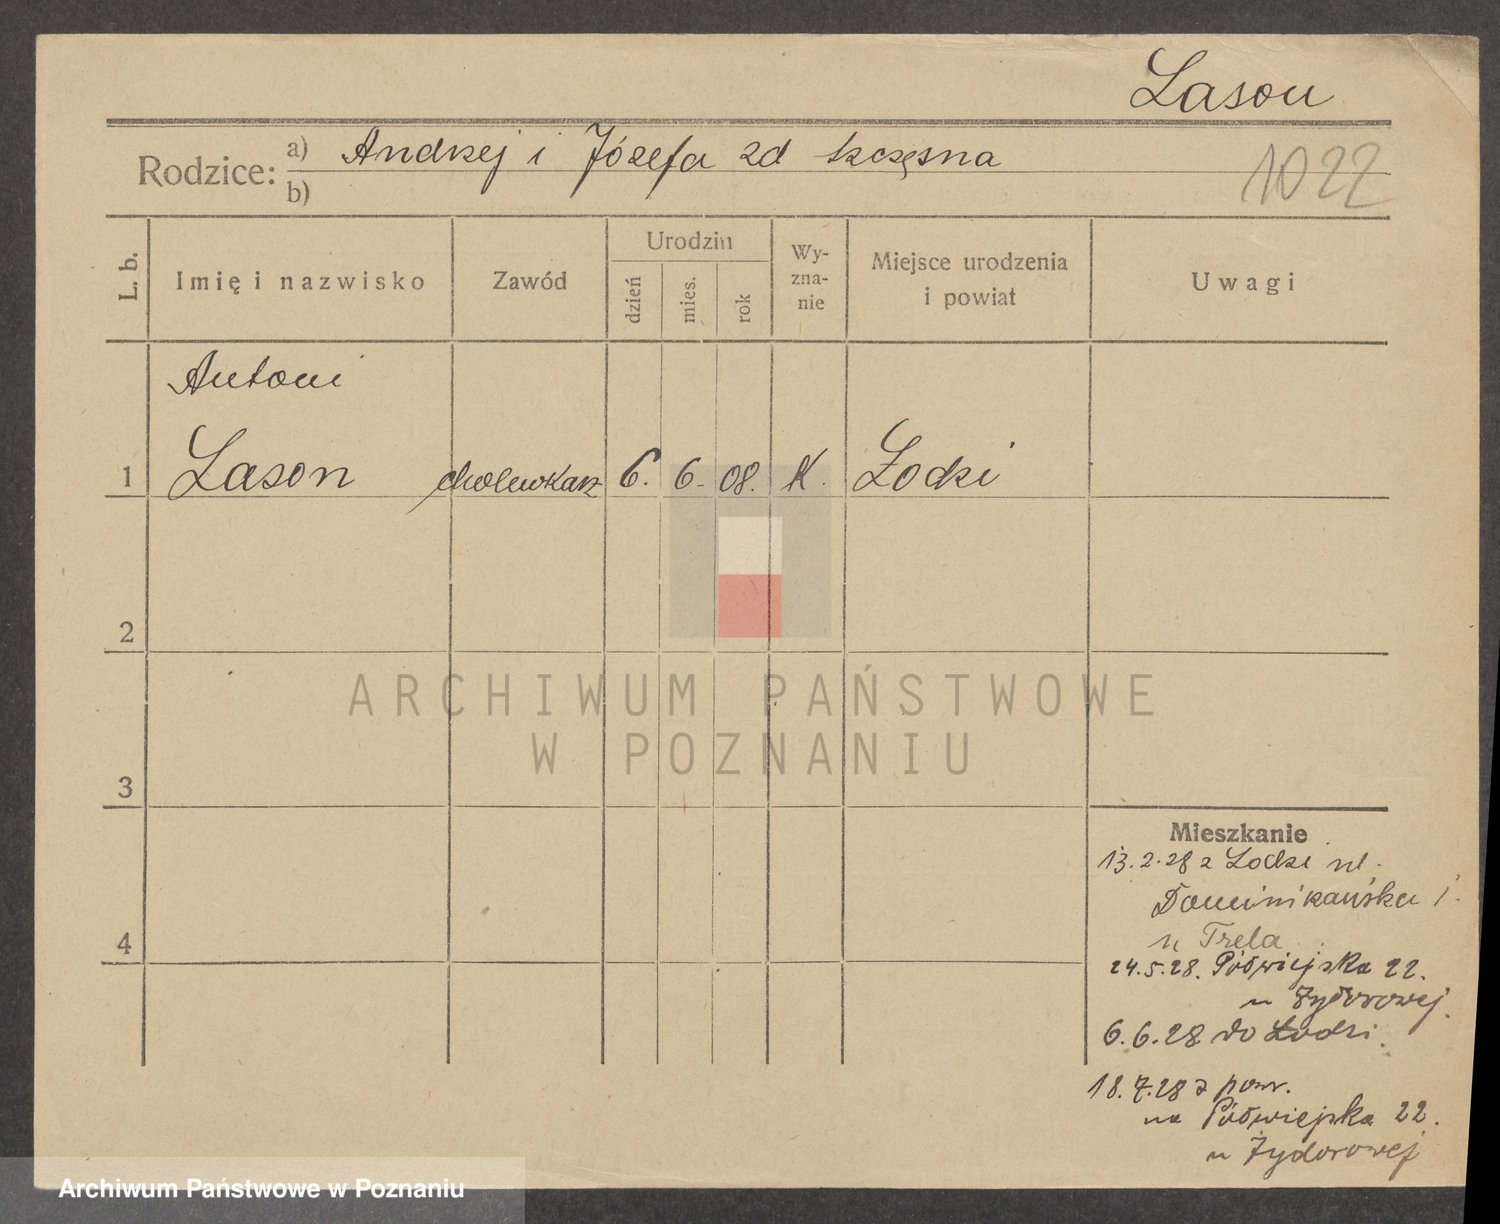 Lason
Rodzice: a) Andrzej i Józefa zd Szczęsna
b)
1022
L. b.
Imię i nazwisko
Zawód
Urodzin
dzień
mies.
rok
Wy-
zna-
nie
Miejsce urodzenia
i powiat
Uwagi
Antoni
1 Lason cholewkarz 6. 6. 08. K. Łodzi
2
3
4
ARCHIWUM PAŃSTWOWE
W POZNANIU
Mieszkanie
13.2.28 z Łodzi ul.
Dominikańska
u Trela
24.5.28. Półwiejska 22.
u Żydorowej.
6.6.28 do Łodzi.
18.7.28 z powr.
na Półwiejska 22.
u Żydorowej
Archiwum Państwowe w Poznaniu